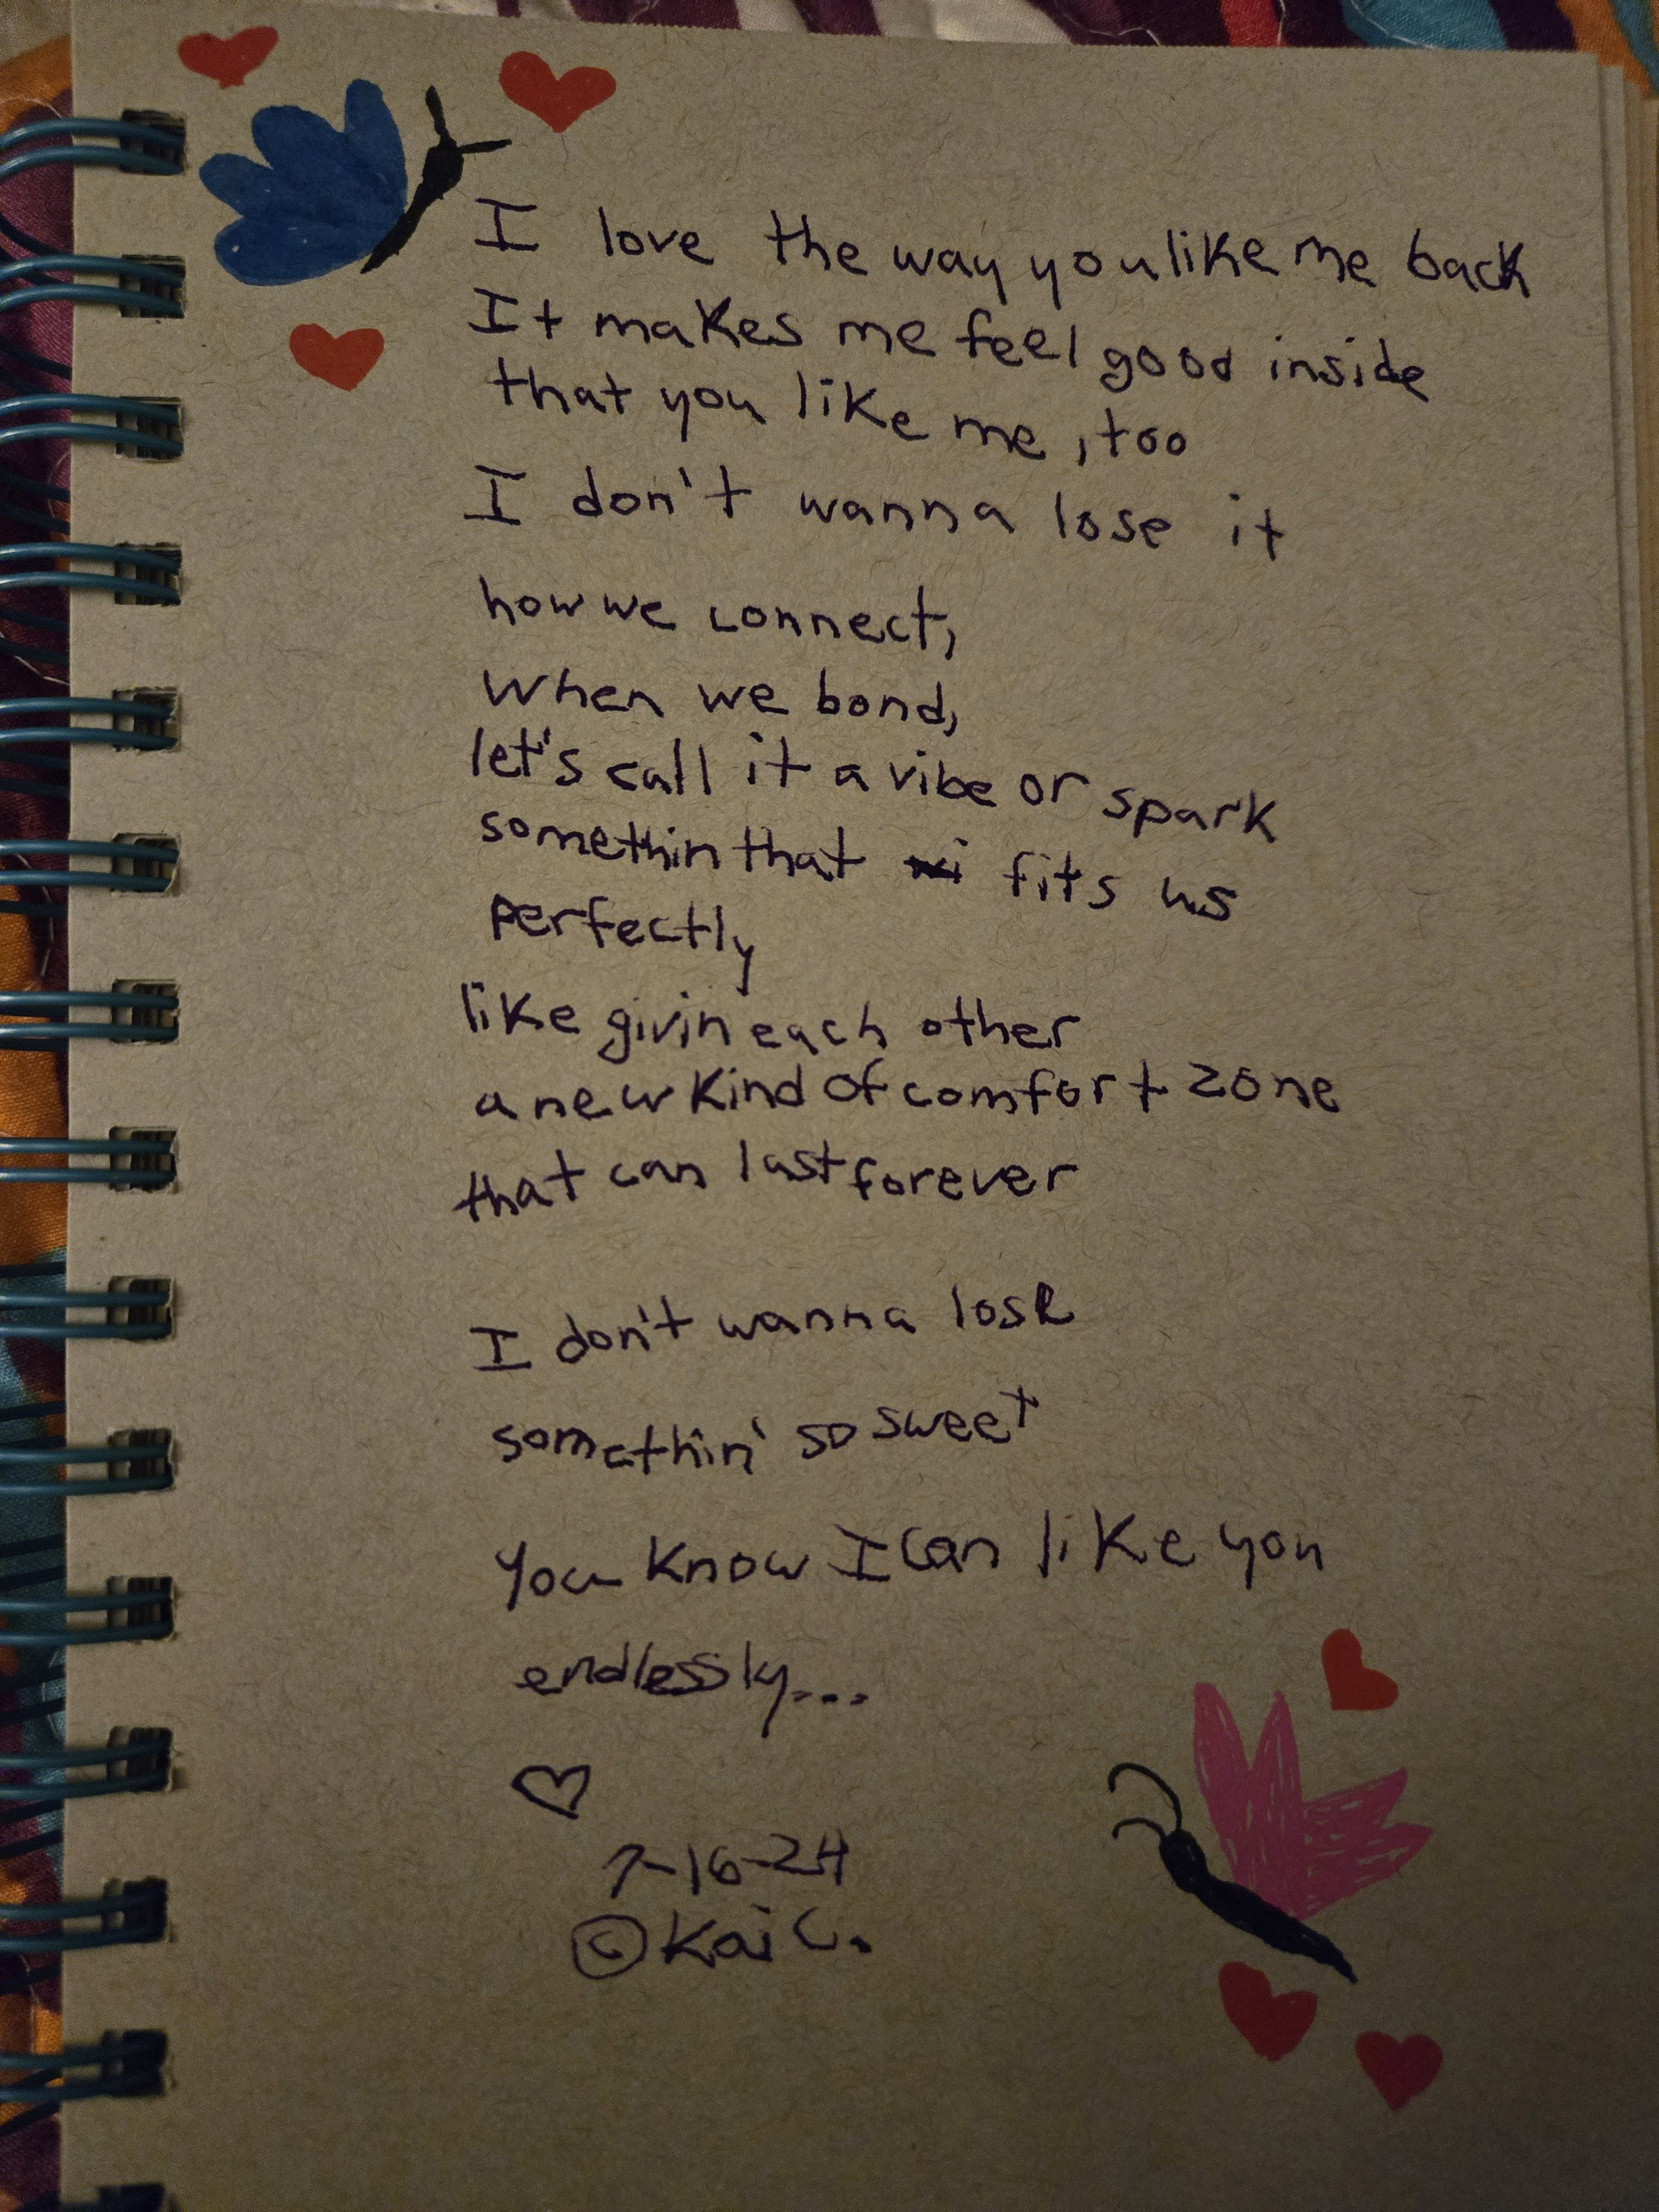 I love the way you like me back
It makes me feel good inside
that you like me, too
I don't wanna lose it
how we connect,
When we bond,
let's call it a vibe or spark
somethin that fits us
perfectly
like givin each other
a new kind of comfort zone
that can last forever
I don't wanna lose
somethin' so sweet
You know I can like you
endlessly...
7-16-24
©Kai C.